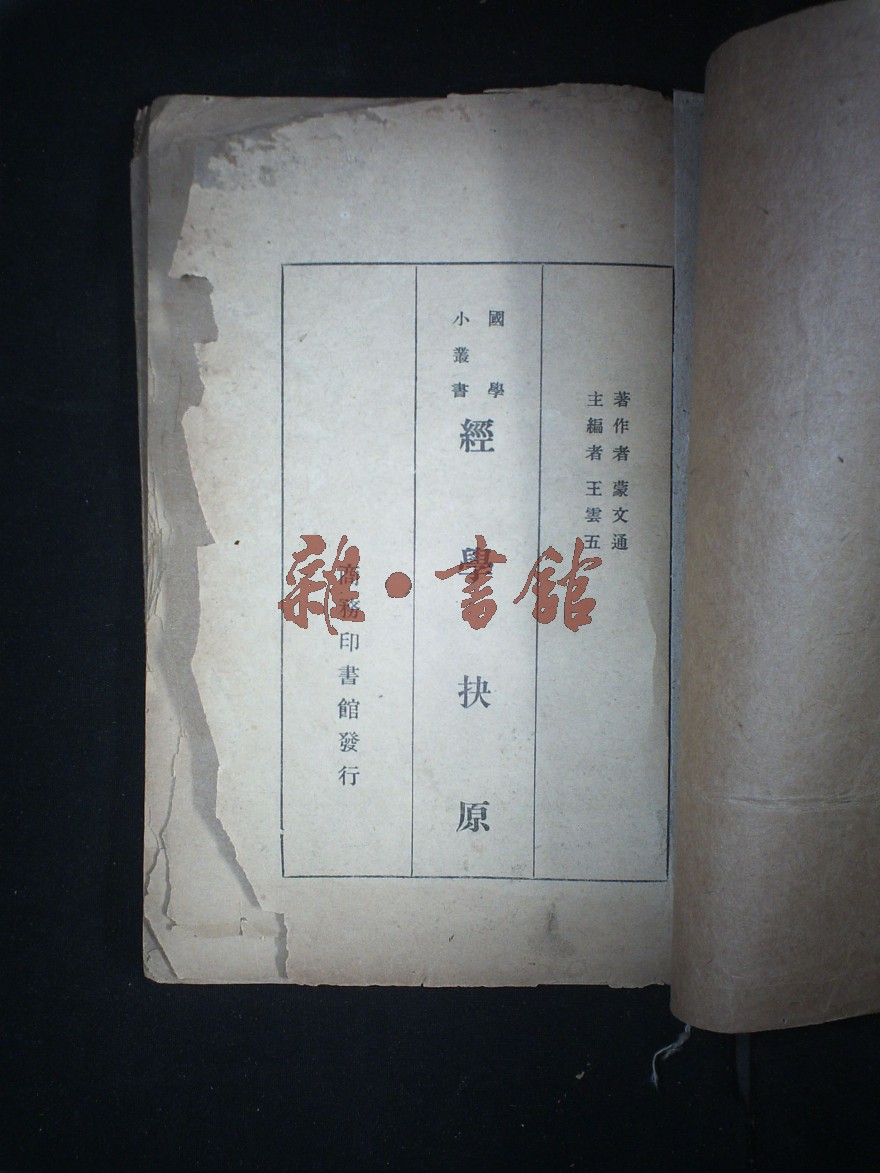 著作者 蒙文通
主編者 王雲五
國學
小叢書
經學抉原
商務印書館發行
雜·書館